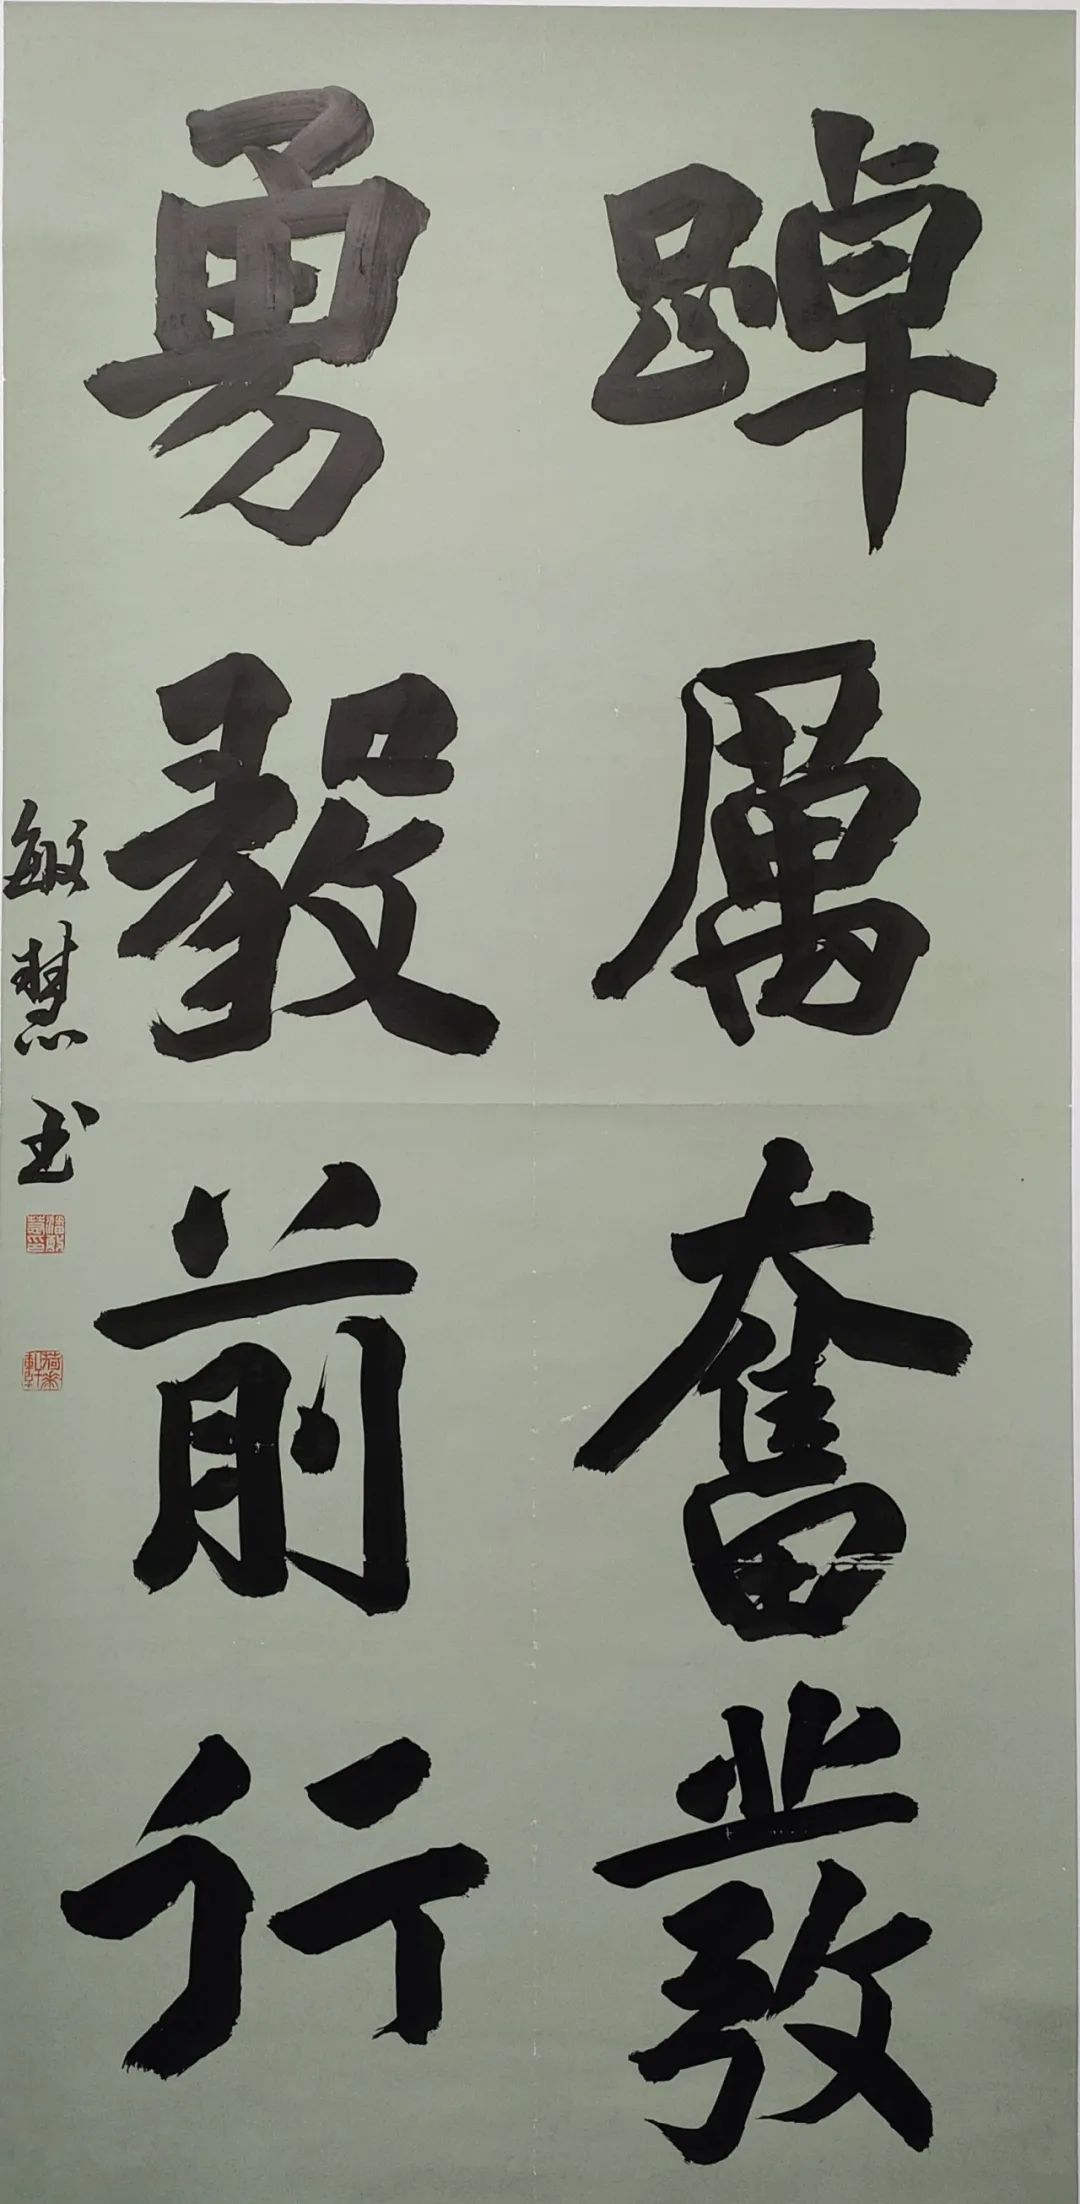 踔厲奮發
勇毅前行
敏慧书